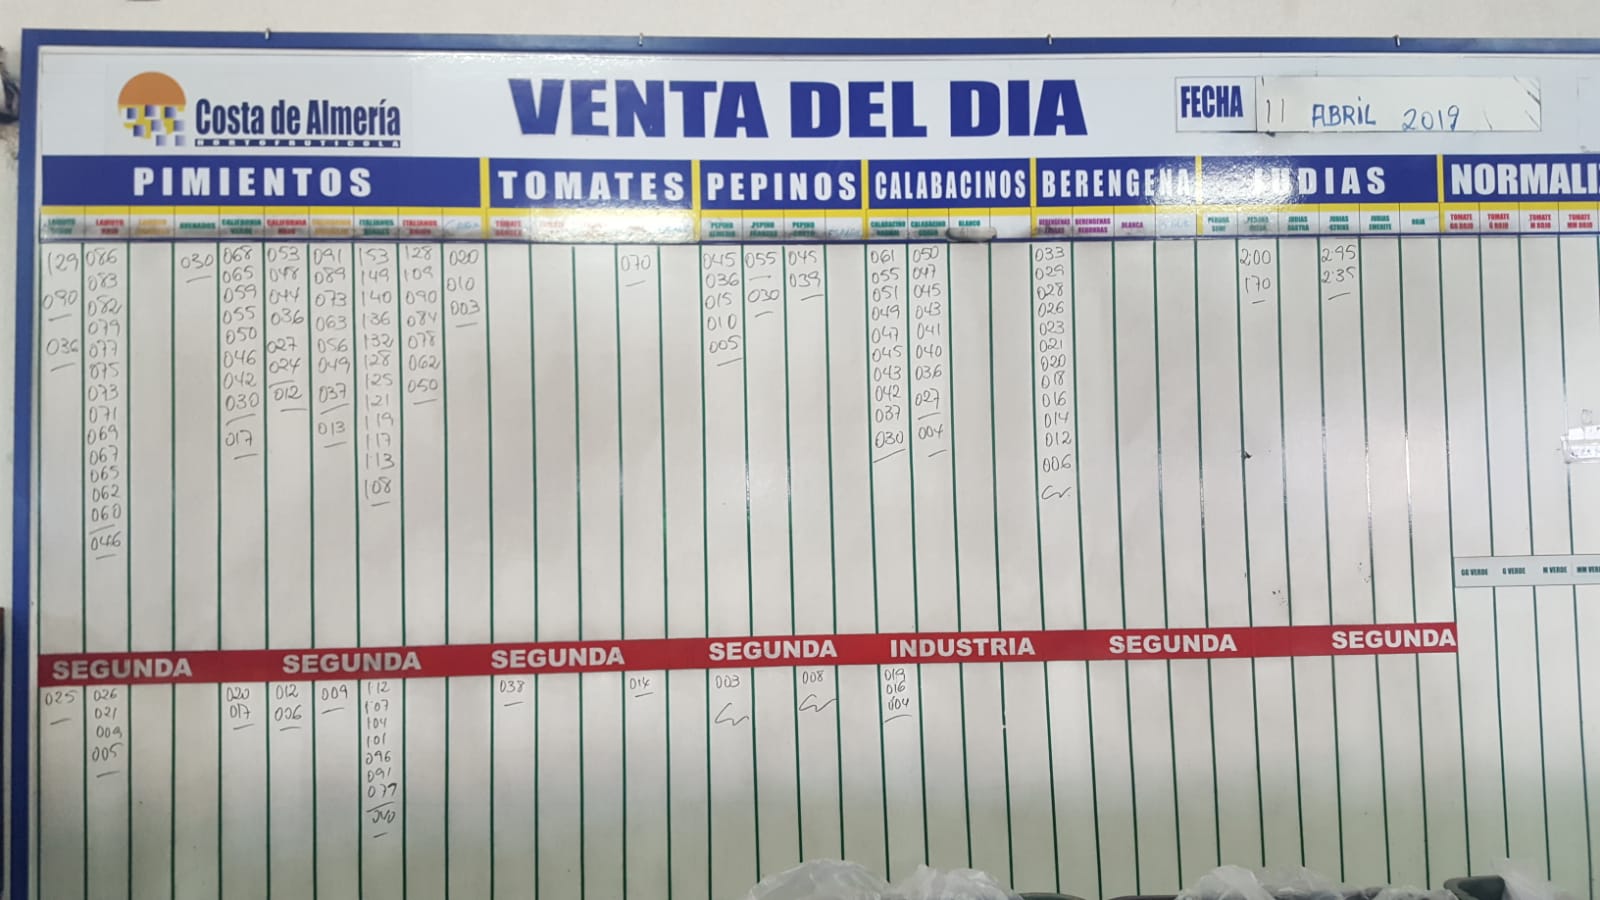 Costa de Almería
HORTOFRUTICOLA
VENTA DEL DIA
FECHA 11 ABRIL 2019
PIMIENTOS TOMATES PEPINOS CALABACINOS BERENGENA JUDIAS NORMALIZ
LAMUYO ROJO CALIFORNIA VERDE CALIFORNIA ROJO ITALIANOS VERDES ITALIANOS ROJOS PEPINO ALMERIA PEPINO FRANCES PEPINO CORTO CALABACINO CALABACINO BLANCO BERENGENAS BERENGENAS REDONDAS BLANCA PERONA JUDIAS RASTRA JUDIAS JUDIAS EMERITE ROJA TOMATE GG ROJO TOMATE G ROJO TOMATE M ROJO TOMATE MM ROJO
129 086 030 068 053 091 153 128 020 070 045 055 045 061 050 033 200 295
083 065 048 089 149 109 010 036 039 055 047 029 170 235
090 082 059 044 073 140 090 003 015 030 051 045 028
079 055 036 063 136 084 010 049 043 026
036 077 050 027 056 132 078 005 047 041 023
075 046 024 049 128 062 045 040 021
073 042 012 037 125 050 043 036 020
071 030 013 121 042 027 018
069 017 119 037 004 016
067 117 030 014
065 113 012
062 108 006
060
046
GG VERDE G VERDE M VERDE MM VER
SEGUNDA SEGUNDA SEGUNDA SEGUNDA INDUSTRIA SEGUNDA SEGUNDA
025 026 020 012 009 112 038 014 003 008 019
021 017 006 107 016
009 104 004
005 101
096
091
077